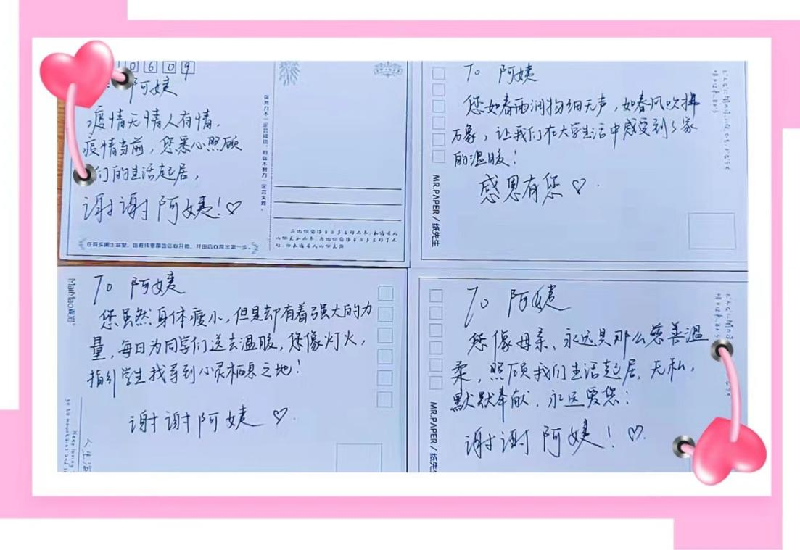 阿姨
疫情无情人有情,
疫情当前,您悉心照顾
们的生活起居,
谢谢阿姨!♡
To 阿姨
您如春雨润物细无声,如春风吹拂
万象,让我们在大学生活中感受到了家
的温暖!
感恩有您♡
MR.PAPER / 纸先生
To 阿姨
您虽然身体瘦小,但是却有着强大的力
量,每日为同学们送去温暖,您像灯火,
指引学生找寻到心灵栖息之地!
谢谢阿姨♡
To 阿姨
您像母亲、永远是那么慈善温
柔,照顾我们生活起居,无私,
默默奉献,永远爱您:
谢谢阿姨!♡
MR.PAPER / 纸先生